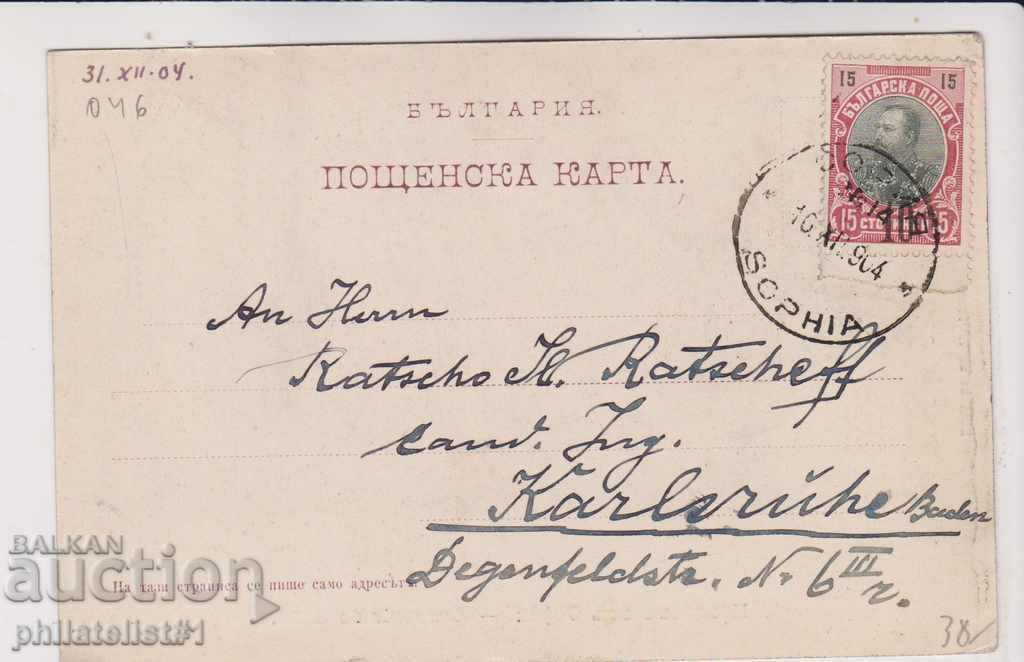 31. XII. 04.
046
БЪЛГАРИЯ.
ПОЩЕНСКА КАРТА.
15 15
БЪЛГАРСКА ПОЩА
15 10 15
10.XII.904
SOPHIA
An Herrn
Ratscho H. Ratscheff
cand. Ing.
Karlsrühe Baden
Degenfeldstr. N. 6 III r.
На тази страница се пише само адресътъ.
BALKAN
auction
philatelist#1
38